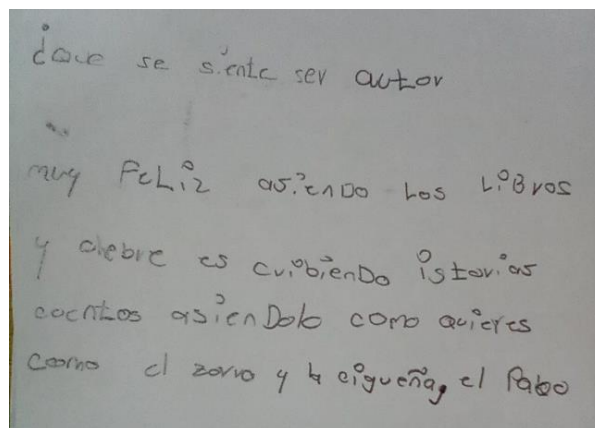 ¿Que se siente ser autor
muy FeLiz asiendo Los LiBros
y ciebre es cribiendo istorias
cuentos asienDolo como quieres
como el zorro y la cigueña, el Pabo